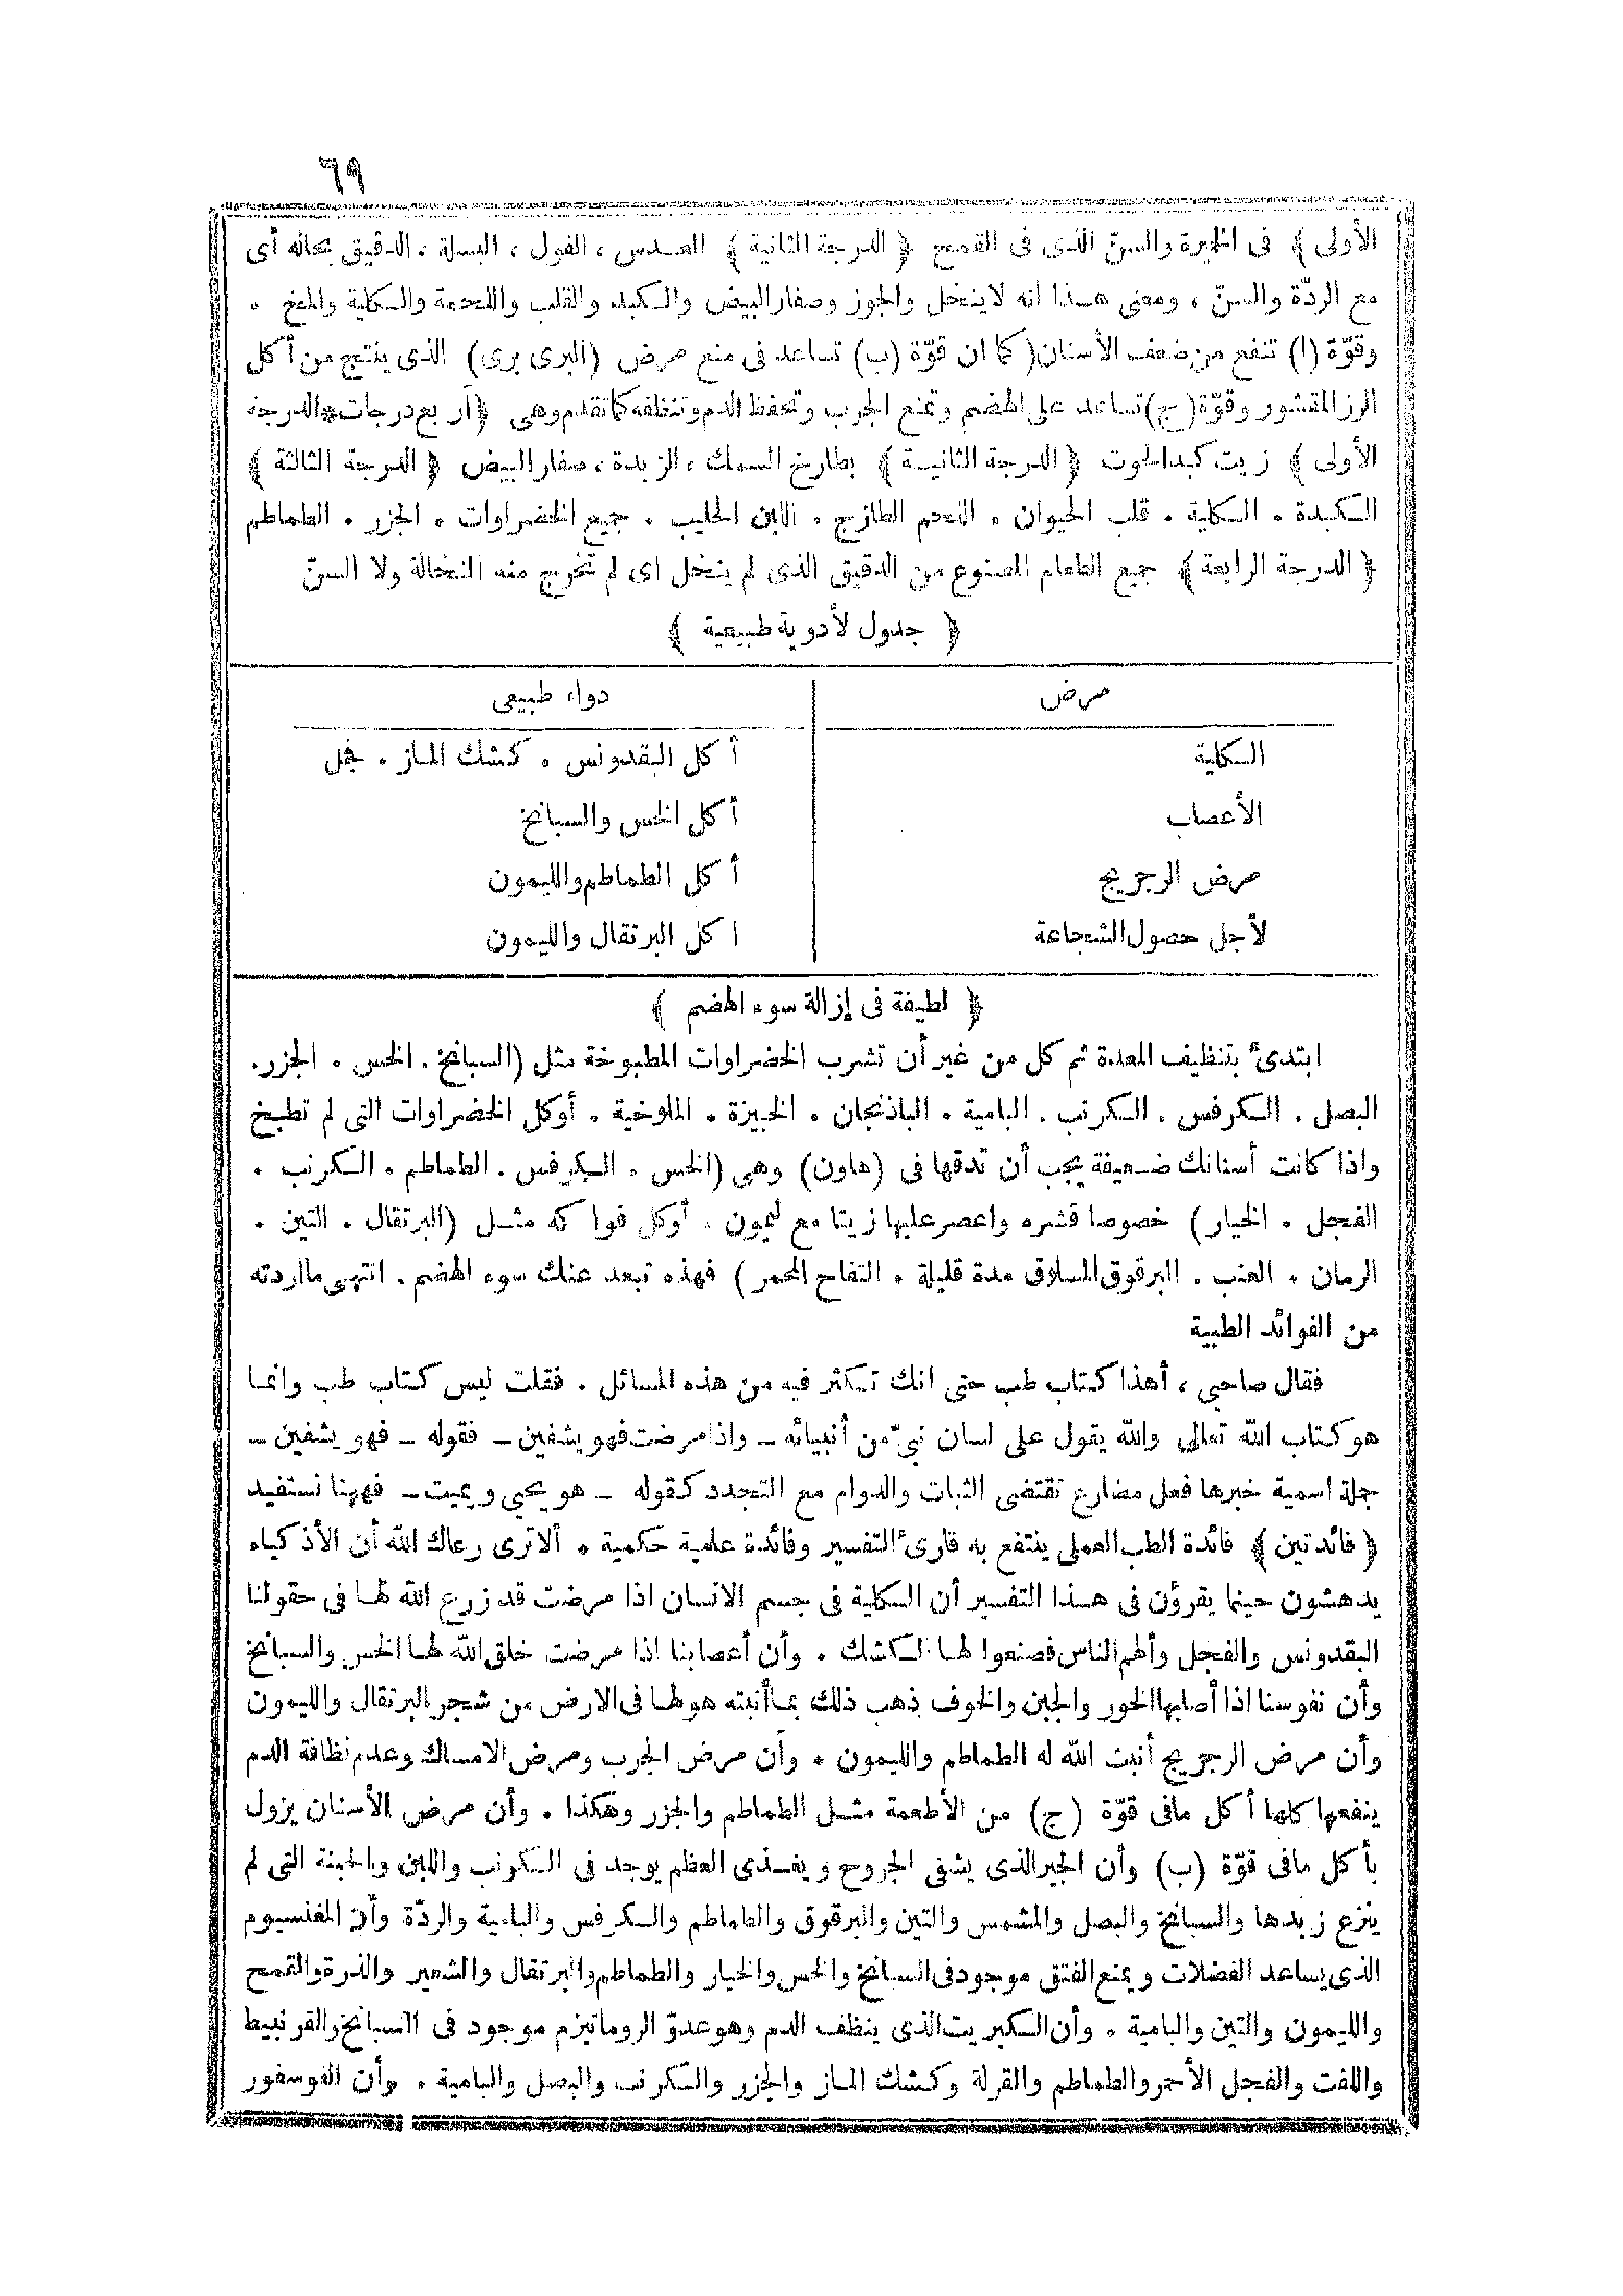 ٦٩
الأولى ﴾ فى الخميرة والسنّ الذى فى القمح ﴿ الدرجة الثانية ﴾ العدس ، الفول ، البسلة ، الدقيق بحاله أى
مع الردّة والسنّ ، ومعنى هذا انه لا ينخل والجوز وصفار البيض والكبد والقلب واللحمة والكلية والمخ .
وقوّة (ا) تنفع من ضعف الأسنان ( كما ان قوّة (ب) تساعد فى منع مرض (البرى برى) الذى ينتج من أكل
الرز المقشور وقوّة (ج) تساعد على الهضم وتمنع الجرب وتحفظ الدم وتنظفه كما تقدم وهى ﴿ أربع درجات * الدرجة
الأولى ﴾ زيت كبد الحوت ﴿ الدرجة الثانية ﴾ بطارخ السمك ، الزبدة ، صفار البيض ﴿ الدرجة الثالثة ﴾
الكبدة . الكلية . قلب الحيوان . اللحم الطازج . اللبن الحليب . جميع الخضراوات . الجزر . الطماطم
﴿ الدرجة الرابعة ﴾ جميع الطعام المصنوع من الدقيق الذى لم ينخل اى لم تخرج منه النخالة ولا السنّ
﴿ جدول لأدوية طبيعية ﴾
مرض دواء طبيعى
الكلية أكل البقدونس . كشك الماز . فجل
الأعصاب أكل الخس والسبانخ
مرض الرجريج أكل الطماطم والليمون
لأجل حصول الشجاعة اكل البرتقال والليمون
﴿ لطيفة فى إزالة سوء الهضم ﴾
ابتدئ بتنظيف المعدة ثم كل من غير أن تشرب الخضراوات المطبوخة مثل (السبانخ . الخس . الجزر .
البصل . الكرفس . الكرنب . البامية . الباذنجان . الخبيزة . الملوخية . أوكل الخضراوات التى لم تطبخ
واذا كانت أسنانك ضعيفة يجب أن تدقها فى (هاون) وهى (الخس . الكرفس . الطماطم . الكرنب .
الفجل . الخيار) خصوصا قشره واعصر عليها زيتا مع ليمون . أوكل فواكه مثل (البرتقال . التين .
الرمان . العنب . البرقوق المسلوق مدة قليلة . التفاح المحمر) فهذه تبعد عنك سوء الهضم . انتهى ما اردته
من الفوائد الطبية
فقال صاحبى ، أهذا كتاب طب حتى انك تكثر فيه من هذه المسائل . فقلت ليس كتاب طب وانما
هو كتاب الله تعالى والله يقول على لسان نبىّ من أنبيائه - واذا مرضت فهو يشفين - فقوله - فهو يشفين -
جملة اسمية خبرها فعل مضارع تقتضى الثبات والدوام مع التجدد كقوله - هو يحيي ويميت - فههنا نستفيد
﴿ فائدتين ﴾ فائدة الطب العملى ينتفع به قارئ التفسير وفائدة علمية حكمية . ألا ترى رعاك الله أن الأذكياء
يدهشون حينما يقرؤن فى هذا التفسير أن الكلية فى جسم الانسان اذا مرضت قد زرع الله لها فى حقولنا
البقدونس والفجل وألهم الناس فصنعوا لها الكشك . وأن أعصابنا اذا مرضت خلق الله لها الخس والسبانخ
وأن نفوسنا اذا أصابها الخور والجبن والخوف ذهب ذلك بما أنبته هو لها فى الارض من شجر البرتقال والليمون
وأن مرض الرجريج أنبت الله له الطماطم والليمون . وأن مرض الجرب ومرض الامساك وعدم نظافة الدم
ينفعها كلها أكل مافى قوّة (ج) من الأطعمة مثل الطماطم والجزر وهكذا . وأن مرض الأسنان يزول
بأكل مافى قوّة (ب) وأن الجير الذى يشفى الجروح ويغذى العظم يوجد فى الكرنب واللبن والجبنة التى لم
ينزع زبدها والسبانخ والبصل والمشمس والتين والبرقوق والطماطم والكرفس والبامية والردّة وأن المغنسيوم
الذى يساعد الفضلات ويمنع الفتق موجود فى السبانخ والخس والخيار والطماطم والبرتقال والشعير والذرة والقمح
والليمون والتين والبامية . وأن الكبريت الذى ينظف الدم وهو عدوّ الروماتيزم موجود فى السبانخ والقرنبيط
واللفت والفجل الأحمر والطماطم والقرلة وكشك الماز والجزر والكرنب والبصل والبامية . وأن الفوسفور